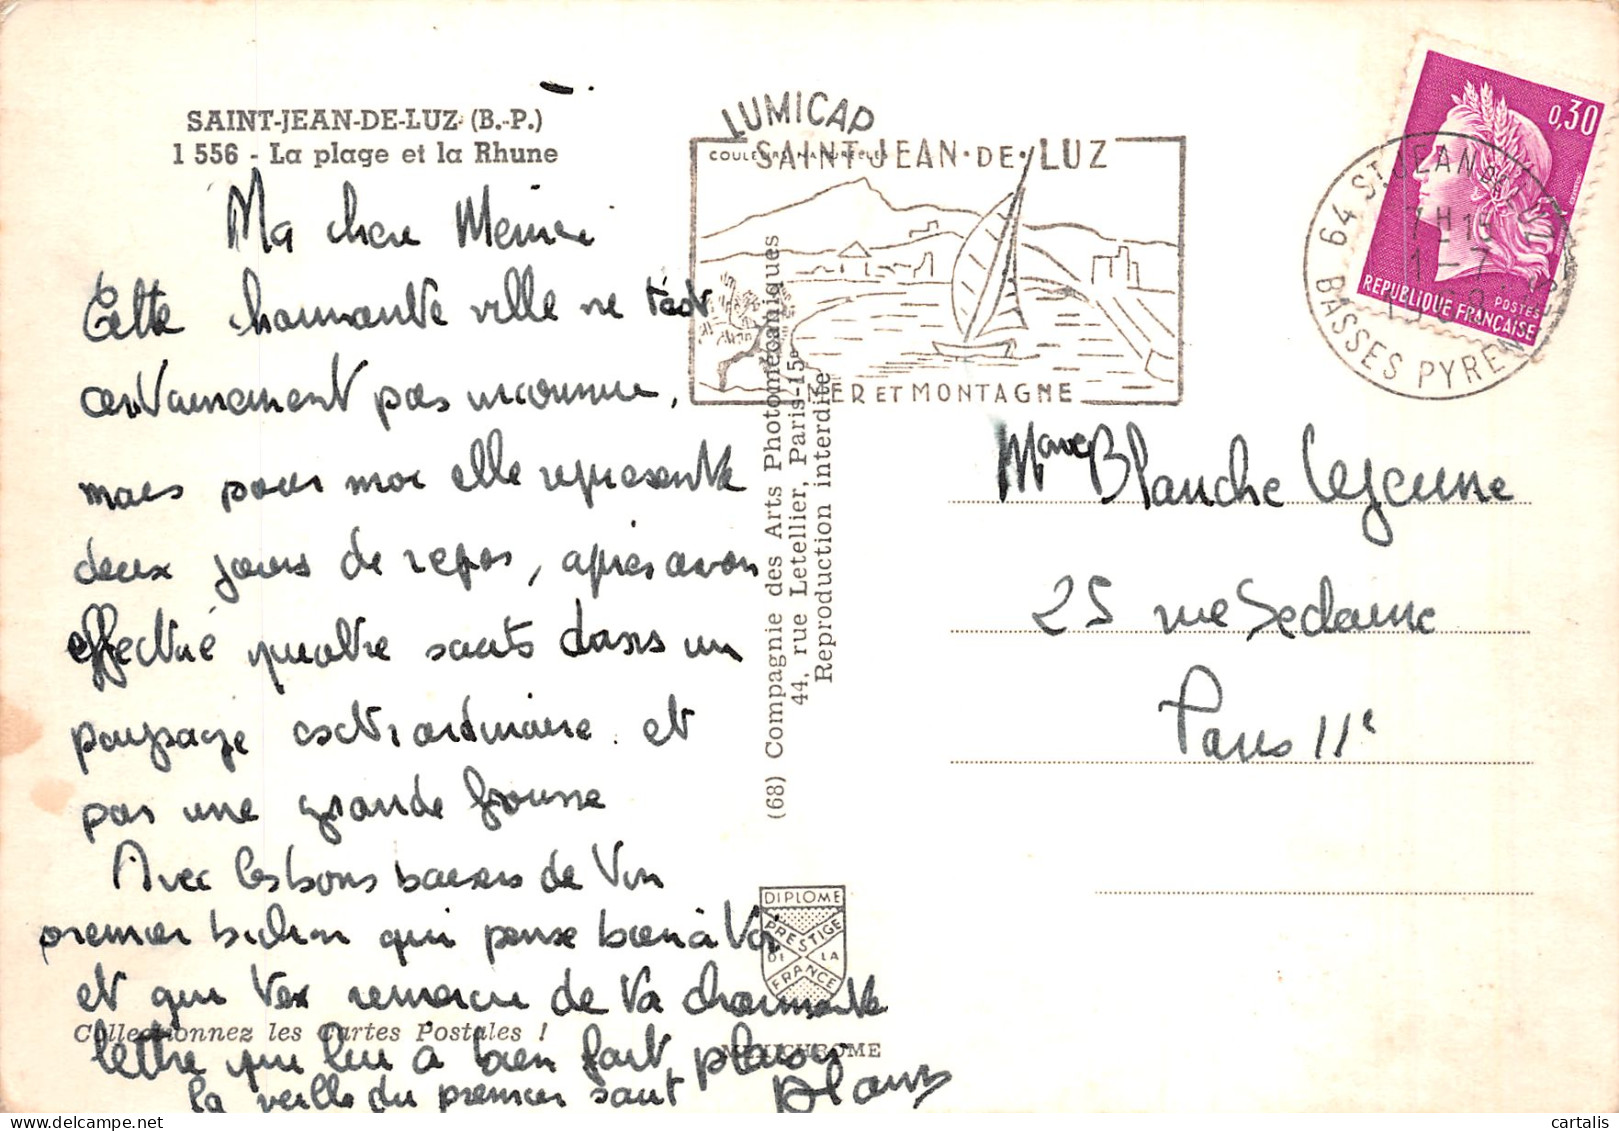 SAINT-JEAN-DE-LUZ (B.-P.)
1 556 - La plage et la Rhune
Ma chère Mémée
Cette charmante ville ne t'est
certainement pas inconnue,
mais pour moi elle représente
deux jours de repos, après avoir
effectué quatre sauts dans un
paysage extraordinaire et
par une grande frousse
Avec les bons baisers de Ton
premier bichon qui pense bien à Toi
et qui Te remercie de Ta charmante
lettre qui lui a bien fait plaisir
la veille du premier saut
Collectionnez les Cartes Postales !
LUMICAP
COULEURS NATURELLES
SAINT JEAN · DE · LUZ
MER ET MONTAGNE
(68) Compagnie des Arts Photomécaniques
44, rue Letellier, Paris-15e
Reproduction interdite
DIPLOME
PRESTIGE
DE LA
FRANCE
MEXICHROME
0,30
POSTES
REPUBLIQUE FRANÇAISE
64 ST JEAN DE LUZ
7H15
1-7
BASSES PYRENEES
Mme Blanche Lejeune
25 rue Sedaine
Paris 11e
cartalis